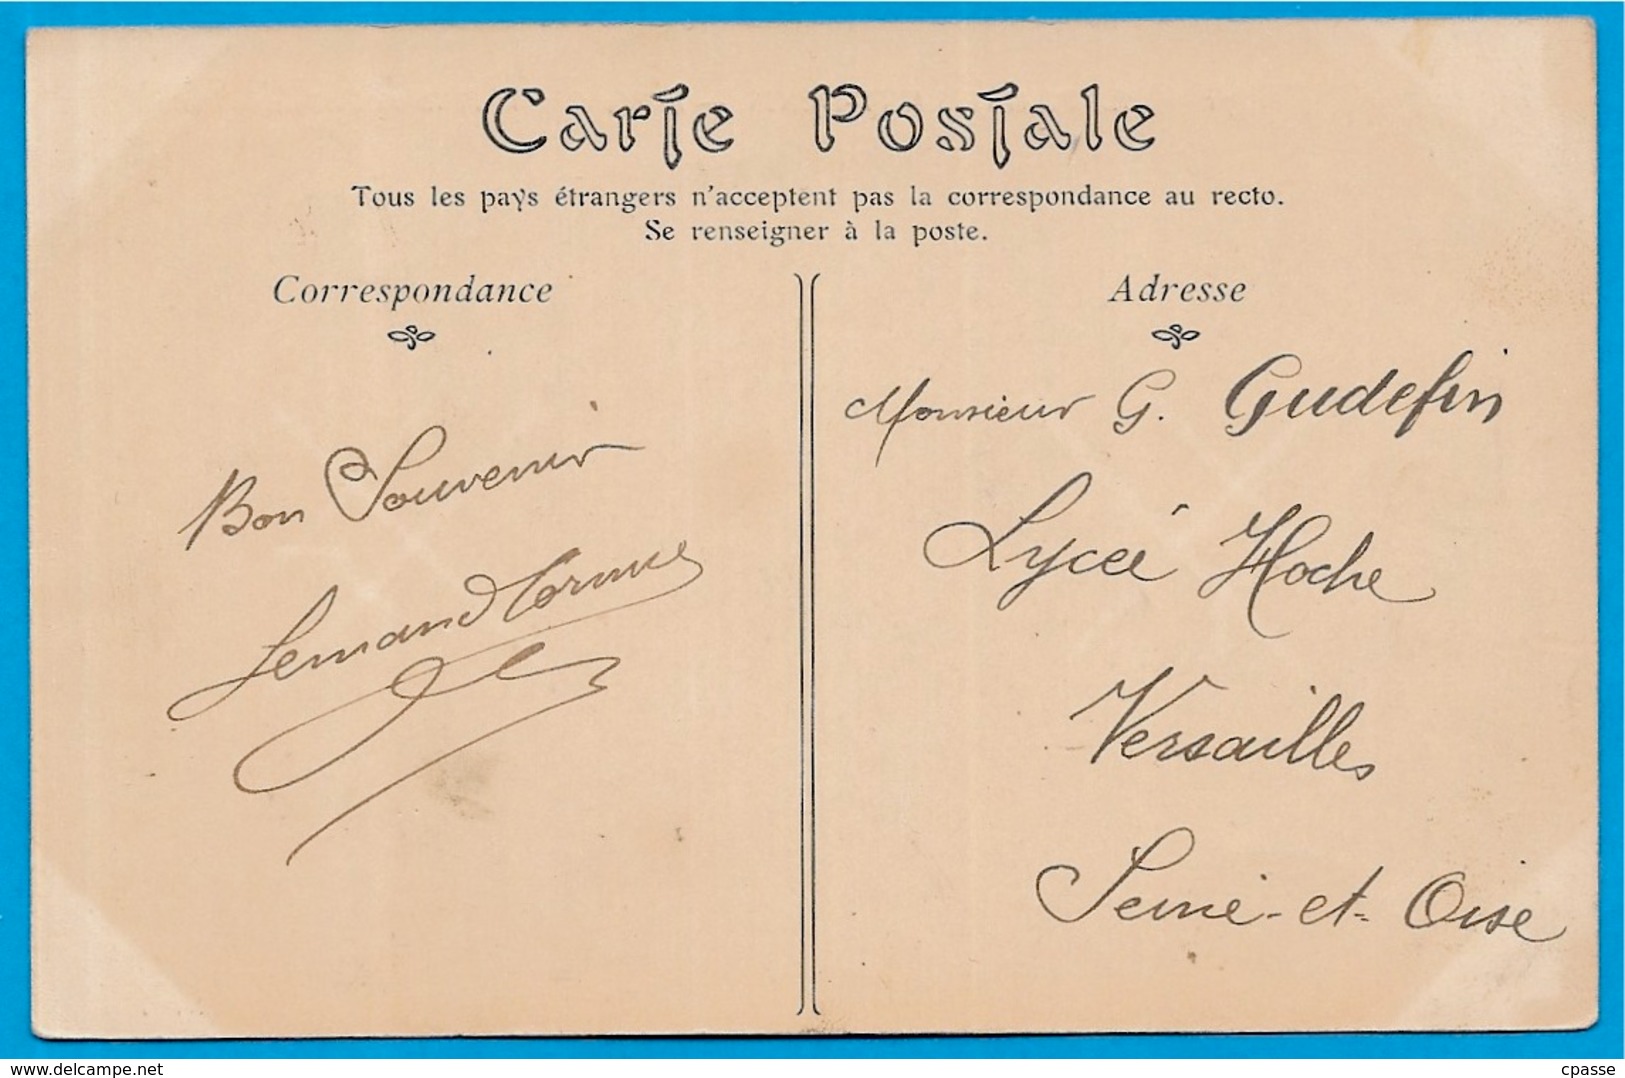 Carte Postale
Tous les pays étrangers n'acceptent pas la correspondance au recto.
Se renseigner à la poste.
Correspondance
Bon Souvenir
Adresse
Monsieur G. Gudefin
Lycée Hoche
Versailles
Seine-et-Oise
www.delcampe.net
cpasse